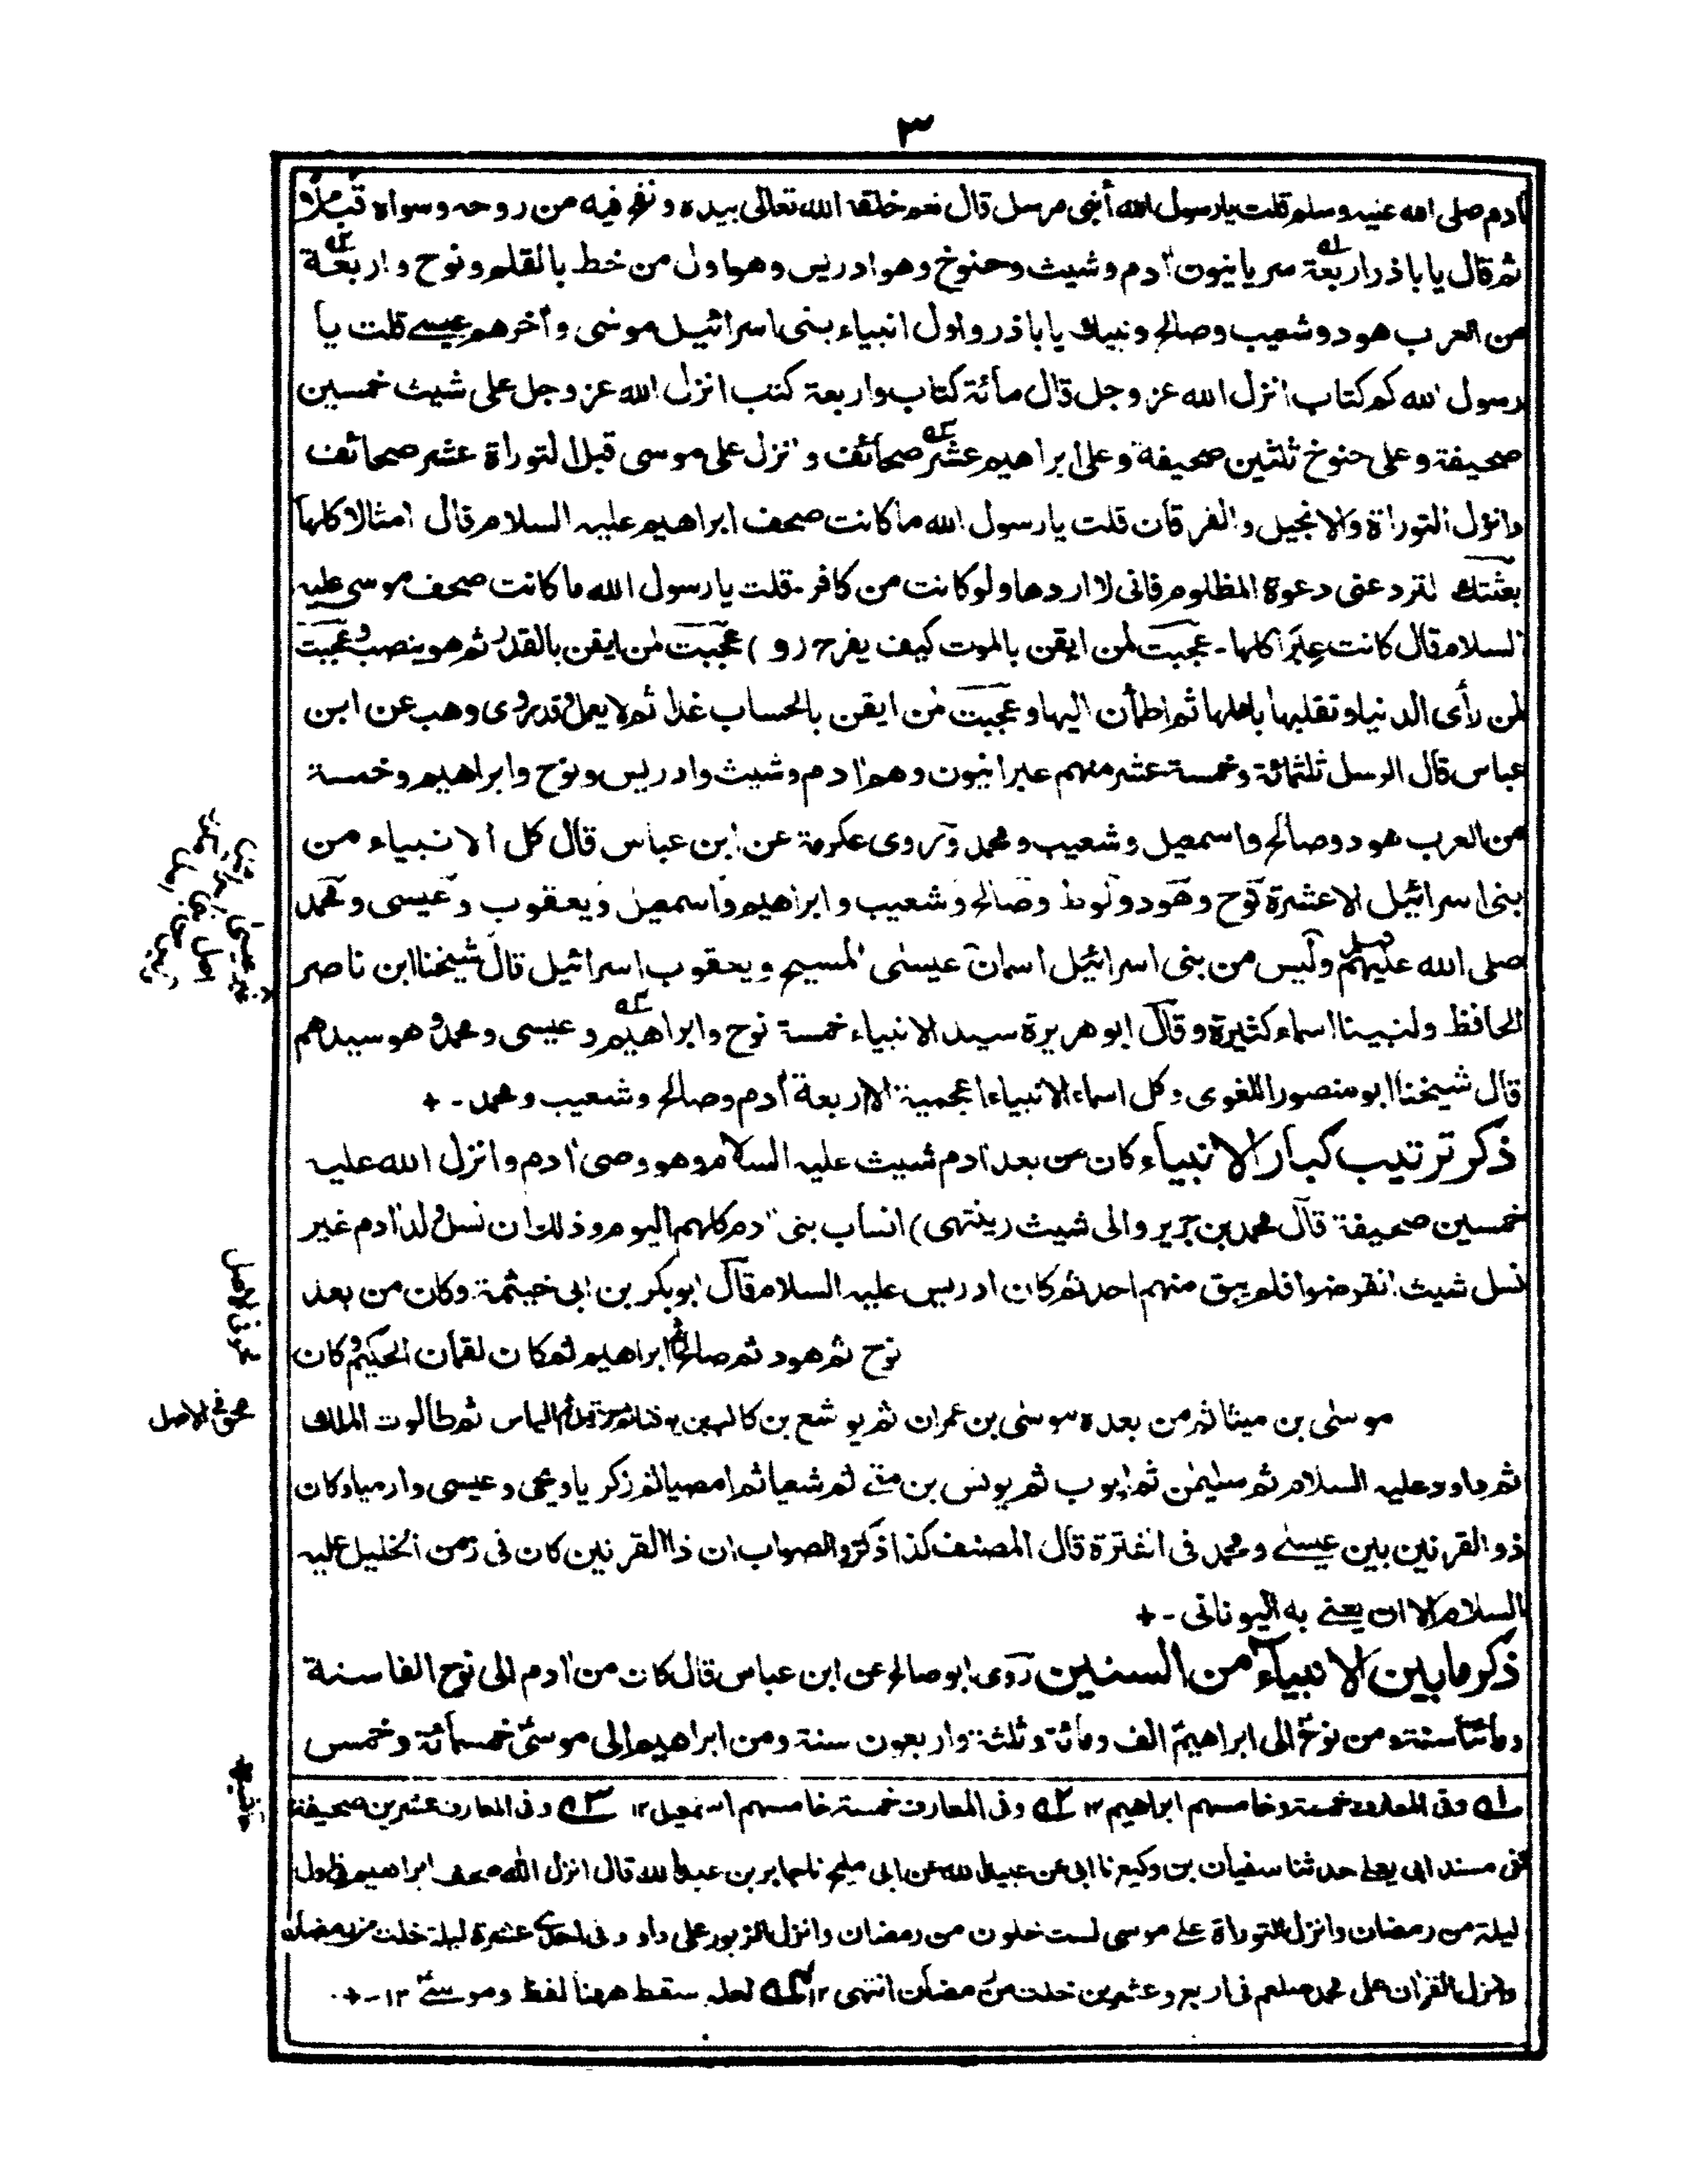 ٣
آدم صلى الله عليه وسلم قلت يا رسول الله أنبي مرسل قال نعم خلقه الله تعالى بيده ونفخ فيه من روحه وسواه قبلا
ثم قال يا باذر اربعة سريانيون آدم وشيث وحنوخ وهو ادريس وهو اول من خط بالقلم ونوح واربعة
من العرب هود وشعيب وصالح ونبيك يا باذر واول انبياء بنى اسرائيل موسى وآخرهم عيسے قلت يا
رسول الله كم كتاب انزل الله عز وجل قال مائة كتاب واربعة كتب انزل الله عز وجل على شيث خمسين
صحيفة وعلى حنوخ ثلثين صحيفة وعلى ابراهيم عشر صحائف وانزل على موسى قبل التوراة عشر صحائف
وانزل التوراة والانجيل والفرقان قلت يا رسول الله ما كانت صحف ابراهيم عليه السلام قال امثالا كلها
بعثتك لترد عنى دعوة المظلوم فانى لا اردها ولو كانت من كافر۔ قلت يا رسول الله ما كانت صحف موسى عليه
السلام قال كانت عبرًا كلها۔ عجبت لمن ايقن بالموت كيف يفرح (و) عجبت لمن ايقن بالقدر ثم هو ينصب وعجبت
لمن رأى الدنيا وتقلبها باهلها ثم اطمأن اليها وعجبت لمن ايقن بالحساب غدا ثم لا يعمل وقد روى وهب عن ابن
عباس قال الرسل ثلثمائة وخمسة عشر منهم عبرانيون وهم آدم وشيث وادريس ونوح وابراهيم وخمسة
من العرب هود وصالح واسمعيل وشعيب ومحمد وروى عكرمة عن ابن عباس قال كل الانبياء من
بنى اسرائيل الا عشرة نوح وهود ولوط وصالح وشعيب وابراهيم واسمعيل ويعقوب وعيسى ومحمد
صلى الله عليهم وليس من بنى اسرائيل اسمان عيسٰى المسيح ويعقوب اسرائيل قال شيخنا ابن ناصر
الحافظ ولنبينا اسماء كثيرة وقال ابو هريرة سيد الانبياء خمسة نوح وابراهيم وعيسى ومحمد وهو سيدهم
قال شيخنا ابو منصور اللغوى وكل اسماء الانبياء اعجمية الا اربعة آدم وصالح وشعيب ومحمد۔ +
ذكر ترتيب كبار الانبياء كان من بعد آدم شيث عليه السلام وهو وصى آدم وانزل الله عليه
خمسين صحيفة قال محمد بن جرير والى شيث (ينتهى) انساب بنى آدم كلهم اليوم وذلك ان نسل ولد آدم غير
نسل شيث انقرضوا فلم يبق منهم احد ثم كان ادريس عليه السلام قال ابو بكر بن ابى خيثمة وكان من بعد
نوح ثم هود ثم صالح ثم ابراهيم ثم كان لقمان الحكيم وكان
موسٰى بن ميشا ثم من بعده موسٰى بن عمران ثم يوشع بن كالب بن يوفنا الياس ثم طالوت الملك
ثم داود عليه السلام ثم سليمٰن ثم ايوب ثم يونس بن متے ثم شعيا ثم امصيا ثم زكريا ويحيى وعيسى وارميا وكان
ذو القرنين بين عيسٰے ومحمد فى الفترة قال المصنف كذا ذكره والصواب ان ذا القرنين كان فى زمن الخليل عليه
السلام الا ان يعنے به اليونانى۔ +
ذكر ما بين الانبياء من السنين روى ابو صالح عن ابن عباس قال كان من آدم الى نوح الفا سنة
ومائتا سنة ومن نوح الى ابراهيم الف ومائة وثلثة واربعون سنة ومن ابراهيم الى موسىٰ خمسمائة وخمس
محق فى الاصل
١ه وفى المعارف خمسة وخامسهم ابراهيم ١٢ ٢ه وفى المعارف خمسة خامسهم اسمعيل ١٢ ٣ه وفى المعارف عشرين صحيفة
فى مسند ابى يعلے حدثنا سفيان بن وكيع نا ابى عن عبيد الله عن ابى مليح نا جابر بن عبد الله قال انزل الله صحف ابراهيم فى اول
ليلة من رمضان وانزل التوراة علے موسى لست خلون من رمضان وانزل الزبور على داود فى احدى عشرة ليلة خلت من رمضان
وانزل القرآن على محمد صلعم فى اربع وعشرين خلت من رمضان انتهى ١٢ ٤ه لعله سقط ههنا لفظ وموسےٰ ١٢۔+۔